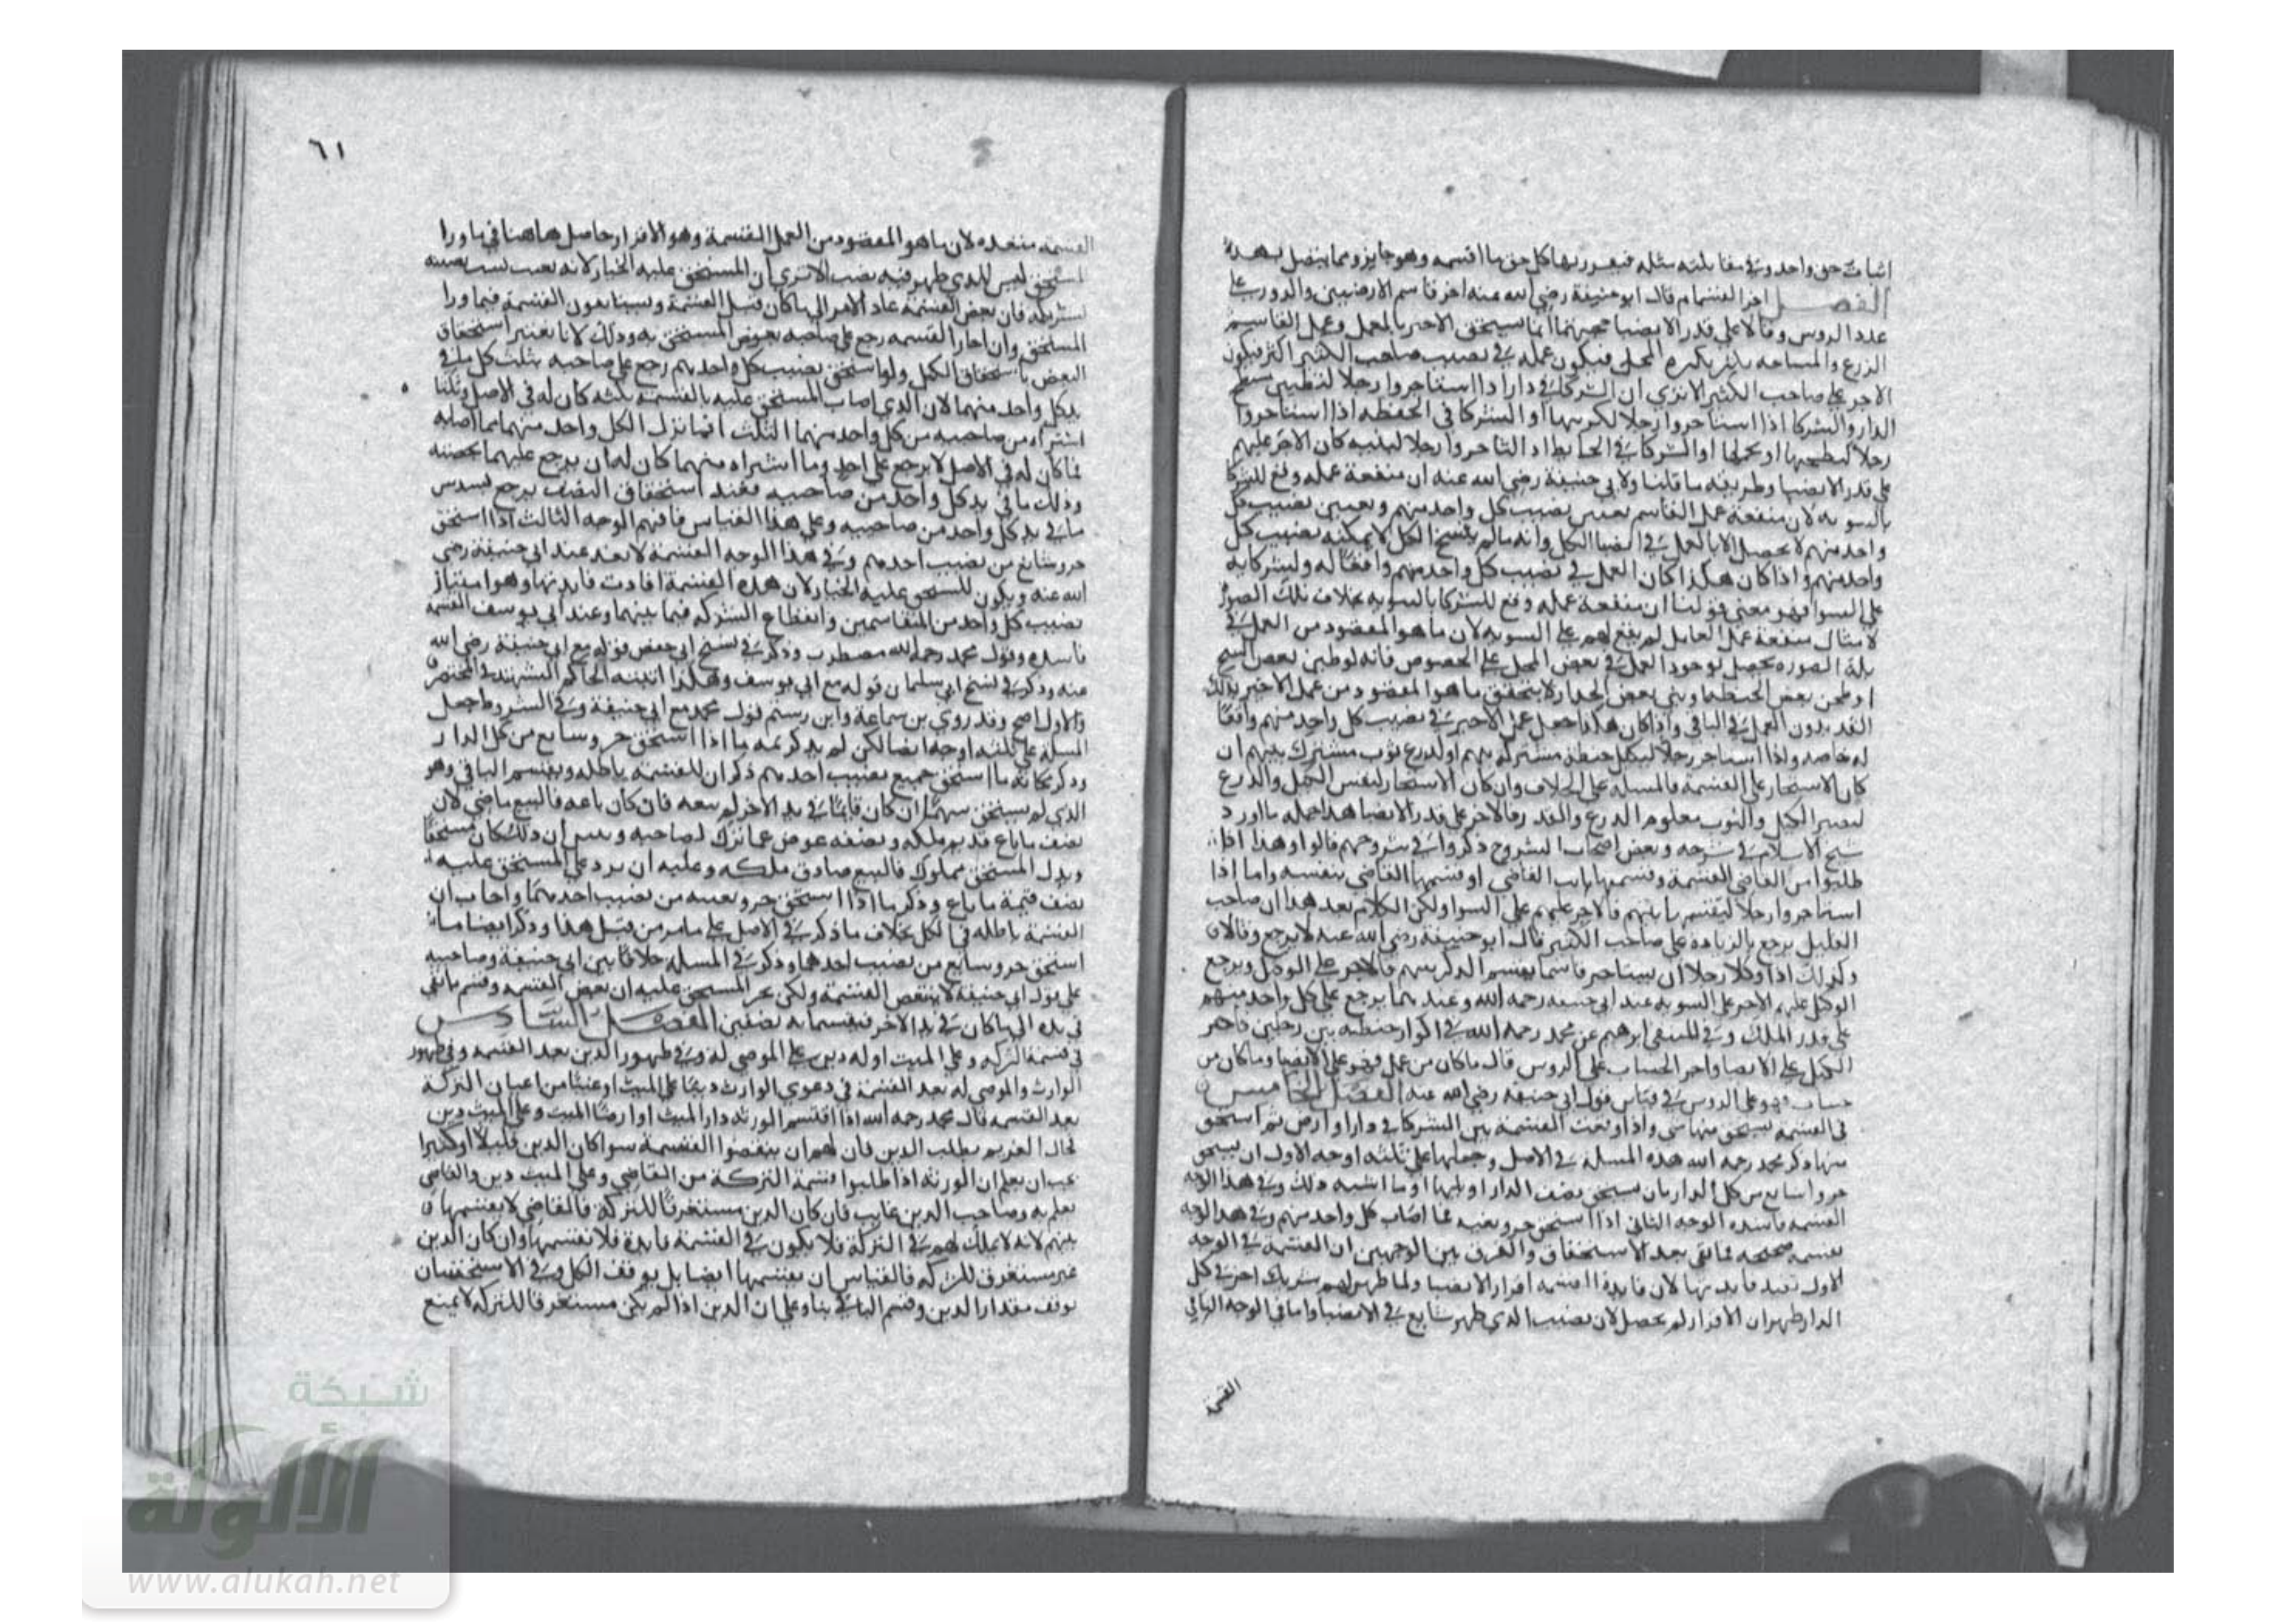 اثبات حق واحد وفي مقابلته مثله فيعود بها كل حق ما اقتسمه وهو جايز ومما يتصل بهذه
الفصل اجر القسام قال ابو حنيفة رضي الله عنه اجر قاسم الارضين والدور على
عدد الروس وقالا على قدر الانصبا حجتهما انما يستحق الاجير بالعمل وعمل القاسم
الذرع والمساحه يكثر بكثرة المحل فيكون عمله في نصيب صاحب الكثير اكثر فيكون
الاجر على صاحب الكثير الا ترى ان الشركا في دار اذا استاجروا رجلا لتطيين سطح
الدار والشركا اذا استاجروا رجلا لكري نهر او الشركا في الحنطه اذا استاجروا
رجلا ليطحنها او الشركا في الحايط اذا استاجروا رجلا ليبنيه كان الاجر عليهم
على قدر الانصبا وطريقه ما قلنا ولابي حنيفة رضي الله عنه ان منفعة عمله وقع للشركا
بالسويه لان منفعة عمل القاسم تعيين نصيب كل واحد منهم وتعيين نصيب كل
واحد منهم لا يحصل الا بالعمل في انصبا الكل وانه ما لم يمسح الكل لا يمكنه نصيب كل
واحد منهم واذا كان هكذا كان العمل في نصيب كل واحد منهم واقعا له ولشركايه
على السوا فهو معنى قولنا ان منفعة عمله وقع للشركا بالسويه بخلاف تلك الصور
لامثال منفعة عمل العامل لم يقع لهم على السويه لان ما هو المقصود من العمل في
تلك الصوره يحصل بوجود العمل في بعض المحل على الخصوص فانه لو طين بعض السطح
او طحن بعض الحنطه او بنى بعض الجدار لا يتحقق ما هو المقصود من عمل الاجير بذلك
القدر بدون العمل في الباقي واذا كان هكذا جعل عمل الاجير في نصيب كل واحد منهم واقعا
له خاصه واذا استاجر رجلا ليكيل حنطة مشتركه بينهم او لذرع ثوب مشترك بينهم ان
كان الاستيجار على القسمة فالمسله على الخلاف وان كان الاستيجار لنفس الكيل والذرع
ليصير الكيل والثوب معلوم الذرع والقدر فالاجر على قدر الانصبا هذا جمله ما اورد
شيخ الاسلام في شرحه وبعض اصحاب الشروح ذكروا في شروحهم قالوا وهذا اذا
طلبوا من القاضي القسمة وقسمها نايب القاضي او قسمها القاضي بنفسه واما اذا
استاجروا رجلا ليقسم بانفسهم فالاجر عليهم على السوا ولكن الكلام بعد هذا ان صاحب
القليل يرجع بالزيادة على صاحب الكثير قال ابو حنيفة رضي الله عنه لا يرجع وقالا
وكذلك اذا وكلا رجلا ان يستاجر قاسما يقسم الدار بينهم فالاجر على الوكيل ويرجع
الوكيل عليهم الاجر على السويه عند ابي حنيفه رحمه الله وعندهما يرجع على كل واحد منهم
على قدر الملك وفي المنتقى ابرهيم عن محمد رحمه الله في اكرار حنطه بين رجلين فاجر
الكيل على الانصبا واجر الحساب على الروس قال ما كان من عمل فهو على الانصبا وما كان من
حساب فهو على الروس في قياس قول ابي حنيفه رضي الله عنه الفصل الخامس
في القسمه يستحق منها شي واذا وقعت القسمة بين الشركا في دار او ارض ثم استحق
منها ذكر محمد رحمه الله هذه المسله في الاصل وجعلها على ثلثه اوجه الاول ان يستحق
جزوا شايع من كل الدار بان يستحق نصف الدار او ثلثها او ما اشبه ذلك وفي هذا الوجه
القسمه فاسده الوجه الثاني اذا استحق جزو بعينه مما اصاب كل واحد منهم وفي هذا الوجه
القسمه صحيحه فيما بقي بعد الاستحقاق والفرق بين الوجهين ان القسمة في الوجه
الاول لم تفد فايدتها لان فايدة القسمه افراز الانصبا ولما ظهر لهم شريك اخر في كل
الدار ظهر ان الافراز لم يحصل لان نصيب الذي ظهر شايع في الانصبا واما في الوجه الثاني
القسمة
٦١
القسمه منعقده لان ما هو المقصود من العمل القسمة وهو الافراز حاصل هاهنا في ما ورا
المستحق ليس للذي ظهر فيه نصيب الا ترى ان المستحق عليه الخيار لانه تعيب
لشريكه فان نقض القسمة عاد الامر الى ما كان قبل القسمة وسيتابعون القسمة فيما ورا
المستحق وان اجاز القسمه رجع على صاحبه بعوض المستحق به وذلك لانا نعتبر استحقاق
البعض باستحقاق الكل ولو استحق نصيب كل واحد منهم رجع على صاحبه بثلث كل ما في
يد كل واحد منهما لان الذي اصاب المستحق عليه بالقسمة ثلثه كان له في الاصل وثلثا
اشتراه من صاحبيه من كل واحد منهما الثلث
فما كان له في الاصل لا يرجع على احد وما اشتراه منهما كان له ان يرجع عليهما بحصته
وذلك ما في يد كل واحد من صاحبيه فعند استحقاق النصف يرجع بسدس
ما في يد كل واحد من صاحبيه وعلى هذا القياس فافهم الوجه الثالث اذا استحق
جزو شايع من نصيب احدهم وفي هذا الوجه القسمة لا تفسد عند ابي حنيفة رضي
الله عنه ويكون للمستحق عليه الخيار لان هذه القسمة افادت فايدتها وهو امتياز
نصيب كل واحد من المتقاسمين وانقطاع الشركه فيما بينهما وعند ابي يوسف القسمه
فاسده وقول محمد رحمه الله مضطرب وذكر في نسخ ابي حفص قوله مع ابي حنيفة رضي الله
عنه وذكر في نسخ ابي سليمان قوله مع ابي يوسف وهكذا اثبته الحاكم الشهيد في المختصر
والاول اصح وقد روى بن سماعة وابن رستم قول محمد مع ابي حنيفة وفي الشروط جعل
المسله على ثلثه اوجه ايضا لكن لم يذكر ثمه ما اذا استحق جزو شايع من كل الدار
وذكر مكانه ما استحق جميع نصيب احدهم ذكر ان القسمه باطله ويقتسم الباقي وهو
الذي لم يستحق سهما ان كان قايما في يد الاخر لم يبعه فان كان باعه فالبيع ماضي لان
نصف ما باع قديم ملكه ونصفه عوض عما ترك لصاحبه وتبين ان ذلك كان مستحقا
وبدل المستحق مملوك فالبيع صادف ملكه وعليه ان يرد على المستحق عليه
نصف قيمة ما باع وذكر ما اذا استحق جزو بعينه من نصيب احدهما واجاب ان
القسمة باطله في الكل بخلاف ما ذكر في الاصل على ما مر من قبل هذا وذكر ايضا ما
استحق جزو شايع من نصيب احدهما وذكر في المسله خلافا بين ابي حنيفة وصاحبيه
على قول ابي حنيفة لا تنتقض القسمة ولكن يخير المستحق عليه ان نقض القسمه وقسم ما بقي
في يده الى ما كان في يد الاخر فيقسمانه نصفين الفصل السادس
في قسمة التركه وعلى الميت او له دين على الموصى له وفي ظهور الدين بعد القسمه وفي ظهور
الوارث والموصى له بعد القسمة في دعوى الوارث دينا على الميت او عينا من اعيان التركة
بعد القسمه قال محمد رحمه الله اذا اقتسم الورثه دار الميت او ارضا للميت وعلى الميت دين
فجاء الغريم يطلب الدين فان لهم ان ينقضوا القسمة سوا كان الدين قليلا او كثيرا
يجب ان يعلم ان الورثه اذا طلبوا قسمة التركة من القاضي وعلى الميت دين والقاضي
يعلم به وصاحب الدين غايب فان كان الدين مستغرقا للتركة فالقاضي لا يقسمها
بينهم لانه لا ملك لهم في التركة فلا يكون في القسمة فايدة فلا تقسمها وان كان الدين
غير مستغرق للتركه فالقياس ان يقسمها ايضا بل يوقف الكل وفي الاستحسان
يوقف مقدار الدين وقسم الباقي بناء على ان الدين اذا لم يكن مستغرقا للتركه لا يمنع
شبكة
الألوكة
www.alukah.net